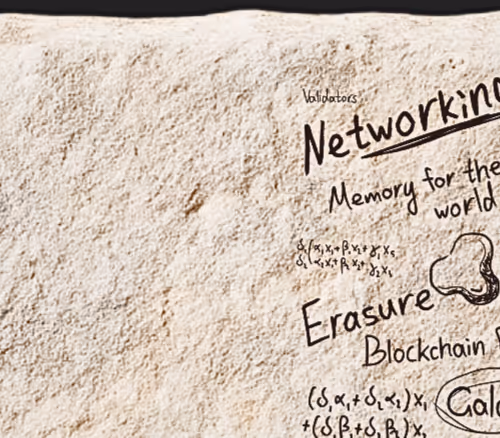 Validators
Networking
Memory for the
world
δ₁(α₁x₁+β₁x₂+γ₁x₃
Erasure
Blockchain
(δ₁α₁+δ₂α₂)x₁
+(δ₁β₁+δ₂β₂)x₂